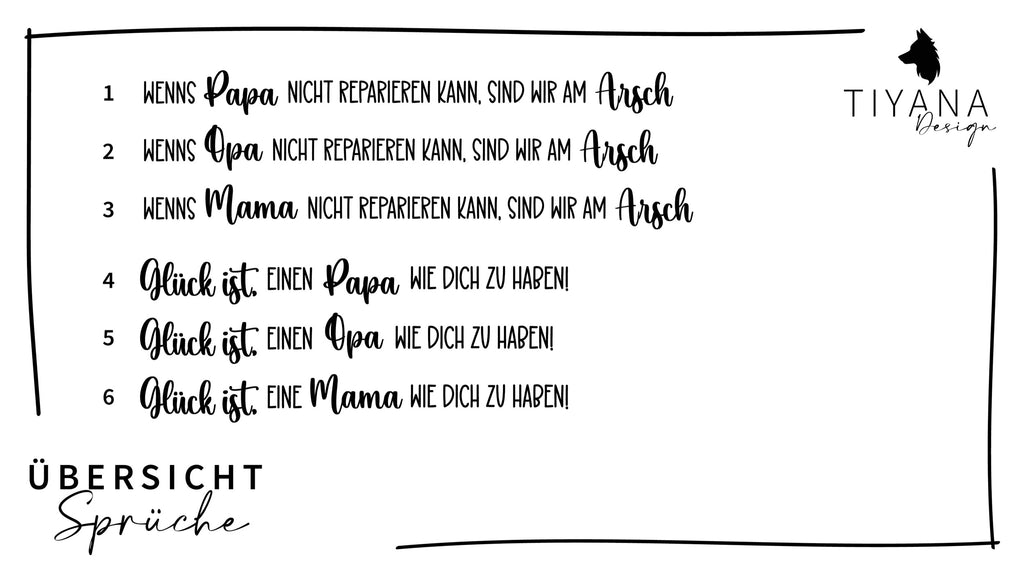 1 WENNS Papa NICHT REPARIEREN KANN, SIND WIR AM Arsch
2 WENNS Opa NICHT REPARIEREN KANN, SIND WIR AM Arsch
3 WENNS Mama NICHT REPARIEREN KANN, SIND WIR AM Arsch
4 Glück ist, EINEN Papa WIE DICH ZU HABEN!
5 Glück ist, EINEN Opa WIE DICH ZU HABEN!
6 Glück ist, EINE Mama WIE DICH ZU HABEN!
ÜBERSICHT
Sprüche
TIYANA
Design